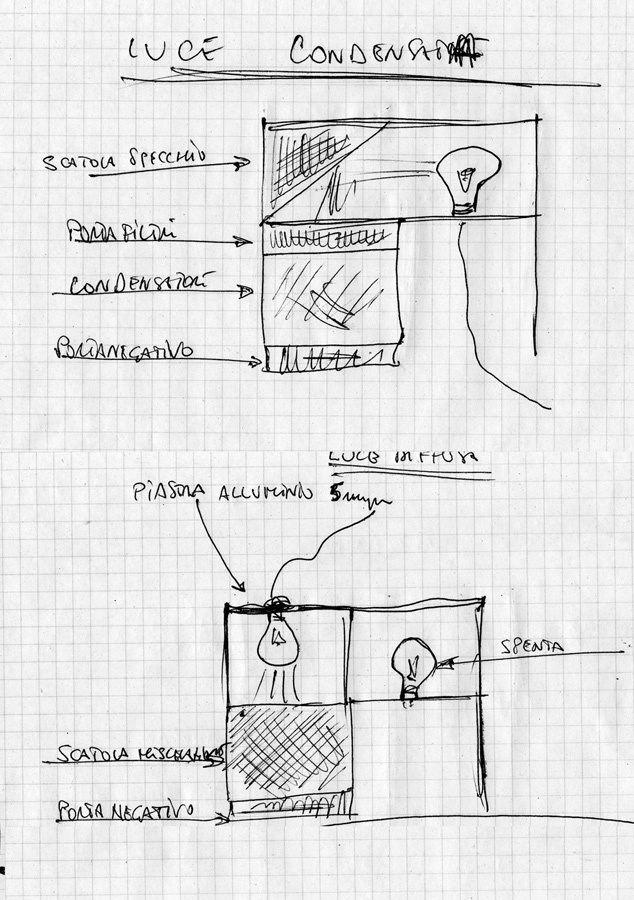 LUCE CONDENSATA
SCATOLA SPECCHIO
PORTAFILTRI
CONDENSATORE
PORTANEGATIVO
LUCE DIFFUSA
PIASTRA ALLUMINIO 5
SPENTA
SCATOLA
PORTA NEGATIVO